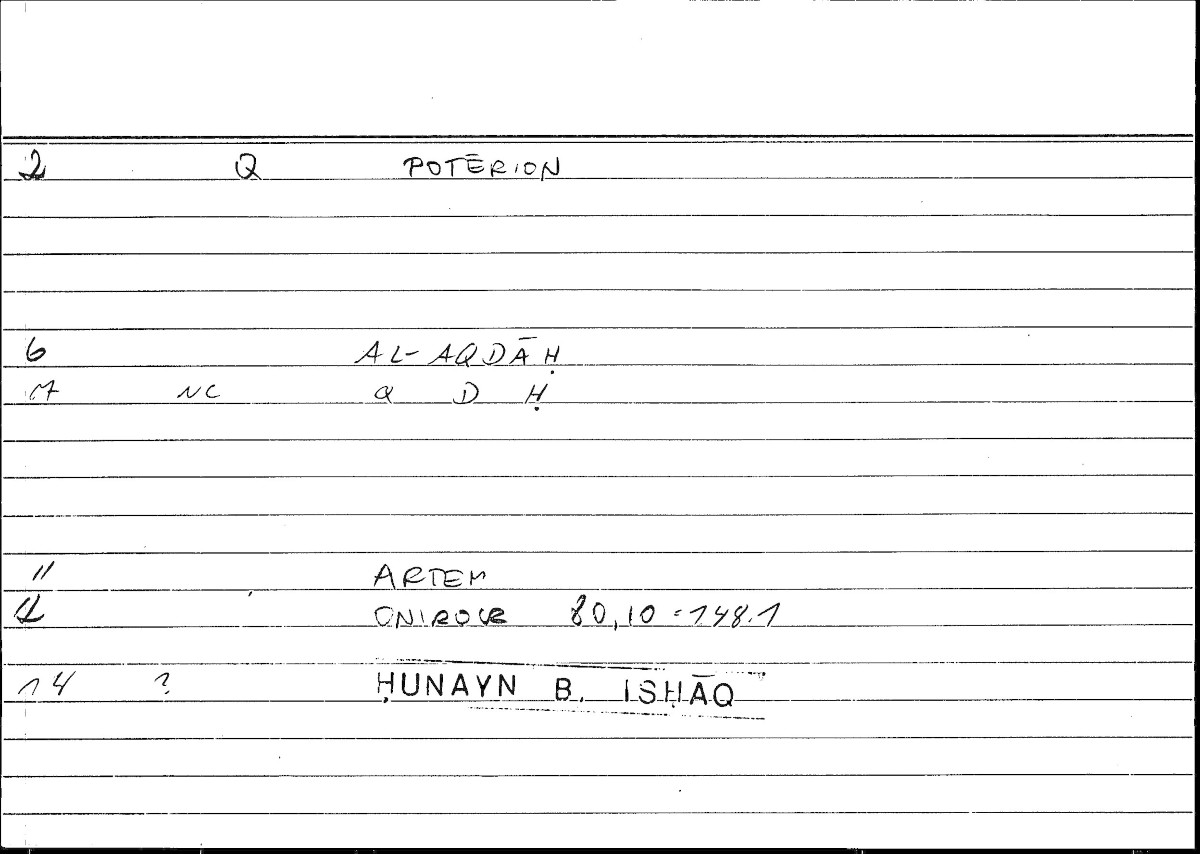 2 Q POTĒRION
6 AL-AQDĀḤ
17 NC Q D Ḥ
11 ARTEM
12 ONIROCR 80,10 = 148.1
14 ? ḤUNAYN B. ISḤĀQ